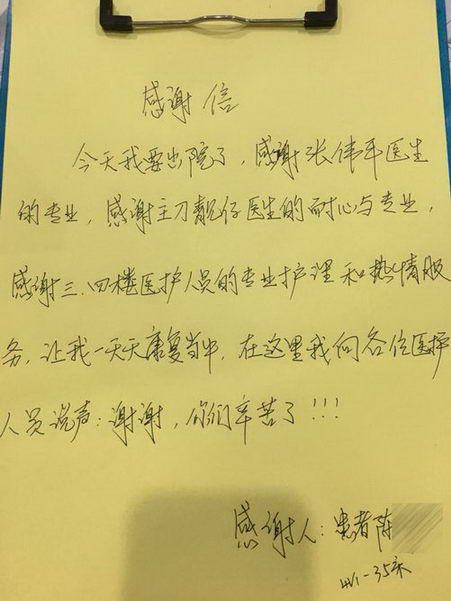 感谢信
今天我要出院了，感谢张伟平医生
的专业，感谢主刀靓仔医生的耐心与专业，
感谢三.四楼医护人员的专业护理和热情服
务，让我一天天康复当中，在这里我向各位医护
人员说声：谢谢，你们辛苦了!!!
感谢人：患者陈